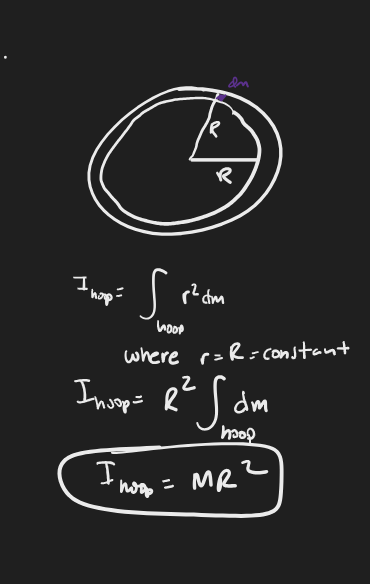 dm
R
R
I hoop = ∫hoop r² dm
where r = R = constant
I hoop = R² ∫hoop dm
I hoop = MR²